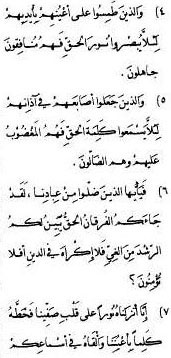 ٤) والذين طمسوا على أعينهم بأيديهم
لئلا يبصروا نور الحق فهم منافقون
جاهلون.
٥) والذين جعلوا أصابعهم في آذانهم
لئلا يسمعوا كلمة الحق فهم المغضوب
عليهم وهم الضالون.
٦) فيأيها الذين ضلوا من عبادنا، لقد
جاءكم الفرقان الحق يبين لكم
الرشد من الغي فلا إكراه في الدين أفلا
تؤمنون؟
٧) إنا أنزلناه نورا على قلب صفينا فخطه
كلما بأعيننا وألقاه في أسماعكم